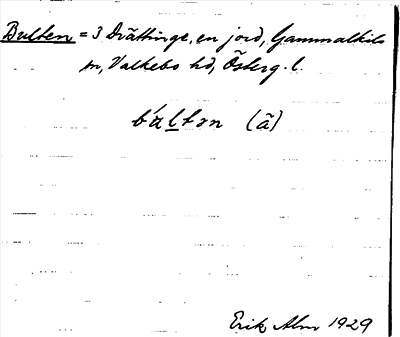 Bulten = 3 Drättinge, en jord, Gammalkils
sn, Valkebo hd, Österg. l.
búltən (ã)
Erik Alm 1929